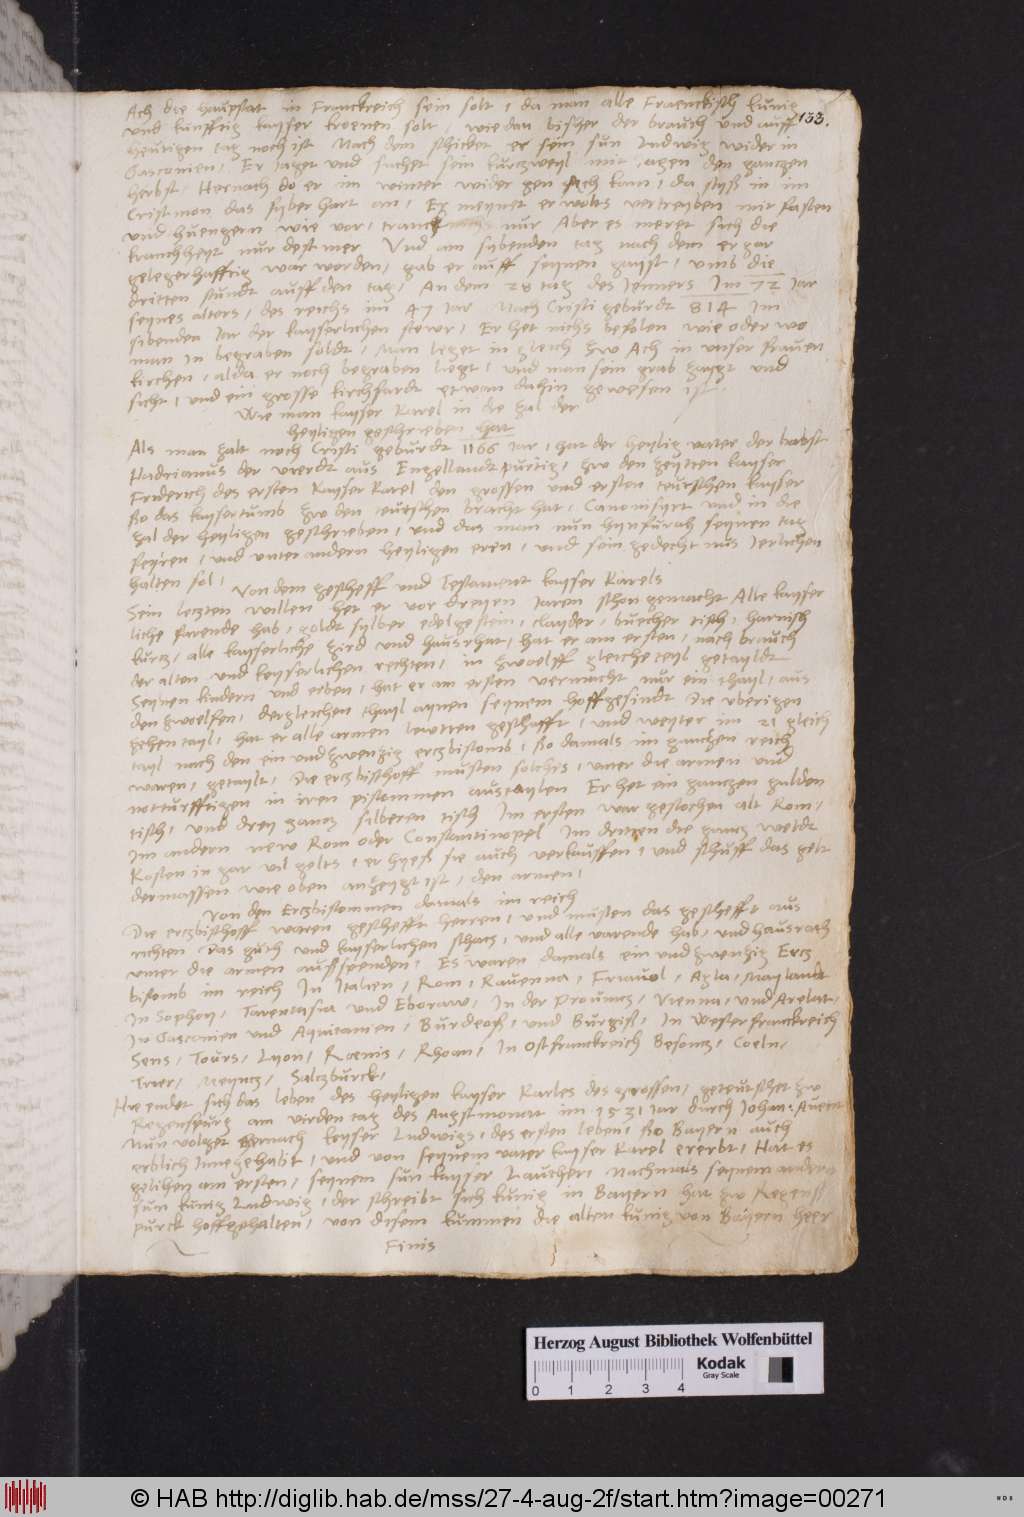 Ach die haupstat in Franckreich sein solt, da man alle Fraenckisch kunig
133.
und kunfftig kayser kroenen solt, wie dan bischer der brauch und auff
heutigen tag noch ist Nach dem schicket er sein sun Ludwig wider in
Gasconien, Er jaget und suchet sein kurczweyl mit jagen den ganczen
herbst, Hernach do er im winter wider gen Ach kam, da styß in im
Cristmon das fyber hart an, Er meynet er wolts vertreyben mit fasten
und hungern wie vor, tranck nur Aber es meret sich die
kranckheyt nur dest mer Und am sybenden tag nach dem er gar
gelegerhafftig war worden, gab er auff seynen gayst, umb die
dritten stundt auff den tag, An dem 28 tag des Jenners Im 72 Jar
seynes alters, des reichs im 47 Jar Nach Cristi geburdt 814 Im
sibenden Jar der kayserlichen stewr, Er het nichs befolen wie oder wo
man in begraben soldt, Man leget in gleich zw Ach in unser frauen
kirchen, alda er noch begraben liegt, und man sein grab zaygt und
sicht, und ein grosse kirchfardt etwan dahin gewesen ist.
Wie man kayser Karel in die zal der
heyligen geschrieben hat
Als man zalt noch Cristi geburdt 1166 Jar, hat der heylig vater der babst
Hadrianus der vierdt aus Engellandt purtig, zw den zeytten kayser
Friderich des ersten Kayser Karel den grossen und ersten teutschen kayser
ßo das kaysertumb zw den teutschen bracht hat, Canonisyrt und in die
zal der heyligen geschrieben, und das man nun hynfuran seynen tag
feyren, und unter andern heyligen eren, und sein gedechtnus Jerlichen
halten sol,
Von dem gescheff und Testament kayser Karels
Sein leczten willen het er vor dreyen Jaren schon gemacht Alle kayser
liche farende hab, goldt sylber edelgestein, clayder, buecher tisch, harnisch
kurcz, alle kayserliche zird und hausrhat, hat er am ersten, nach brauch
der alten und keyserlichen rechten, in zwoelff gleiche teyl getayldt
Seynen kindern und erben, hat er am ersten vermacht nur ein thayl, aus
den zwoelfen, dergleichen thayl aynen seynem hoffgesindt Die uberigen
zehen tayl, hat er alle armen lewtten geschafft, und weyter im 21 gleich
tayl nach den ein und zwenzig erczbistomb, ßo damals im ganczen reich
waren, getaylt, Die erczbischoff musten solchis, unter die armen und
notturfftigen in iren pistommen austaylen Er het ein ganczen gulden
tisch, und drey gancz silberen tisch Im ersten war gestochen alt Rom,
Im andern new Rom oder Constantinopel Im dritten die gancz weldt
Kosten in gar vil gelts, er hyeß sie auch verkauffen, und schuff das gelt
dermassen wie oben anzeygt ist, den armen,
Von den Erczbistommen damals im reich
Die erczbischoff waren geschefft herren, und musten das geschefft aus
richten Das guth und kayserlichen schacz, und alle varende hab, und hausrath
unter die armen ausspenden, Es waren damals ein und zwenzig Ercz
bistomb im reich In Italien, Rom, Ravenna, Friaul, Agla, Maylandt
In Sophoy, Tarentasia und Eboraw, In der Provincz, Vienna, und Arelat,
In Gasconien und Aquitanien, Burdeos, und Burgis, In Westerfranckreich
Sens, Tours, Lyon, Raenis, Rhoan, In Ostfranckreich Besoncz, Coeln,
Trier, Meyncz, Salczburck,
Hie endet sich das leben des heyligen kayser Karles des grossen, geteutschet zw
Regenspurg am vierden tag des Augstmonat im 1531 Jar durch Johan: Avent
Nun volget hernach keyser Ludwigs, des ersten leben, ßo Bayern auch
erblich Innegehabt, und von seynem vater kayser Karel ererbt, Hat es
gelihen am ersten, seynem sun kayser Lauther, nachmals seynem andern
sun kunig Ludwig, der schreibt sich kunig in Bayern hat zw Regenß
purck hoffgehalten, von disem kummen die alten kunig von Bayern heer
Finis
Herzog August Bibliothek Wolfenbüttel
Kodak
Gray Scale
0 1 2 3 4
© HAB http://diglib.hab.de/mss/27-4-aug-2f/start.htm?image=00271